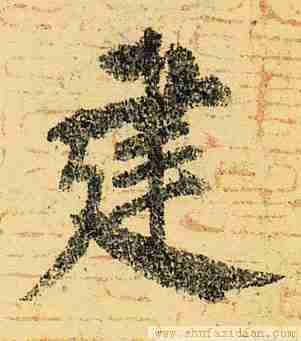 建
www.shufazidian.com